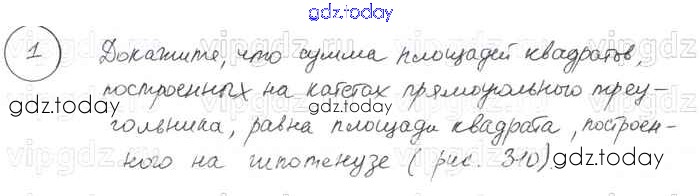 gdz.today
1 Докажите, что сумма площадей квадратов,
построенных на катетах прямоугольного треу-
gdz.today gdz.today
гольника, равна площади квадрата, построен-
ного на гипотенузе (рис. 310).
gdz.today